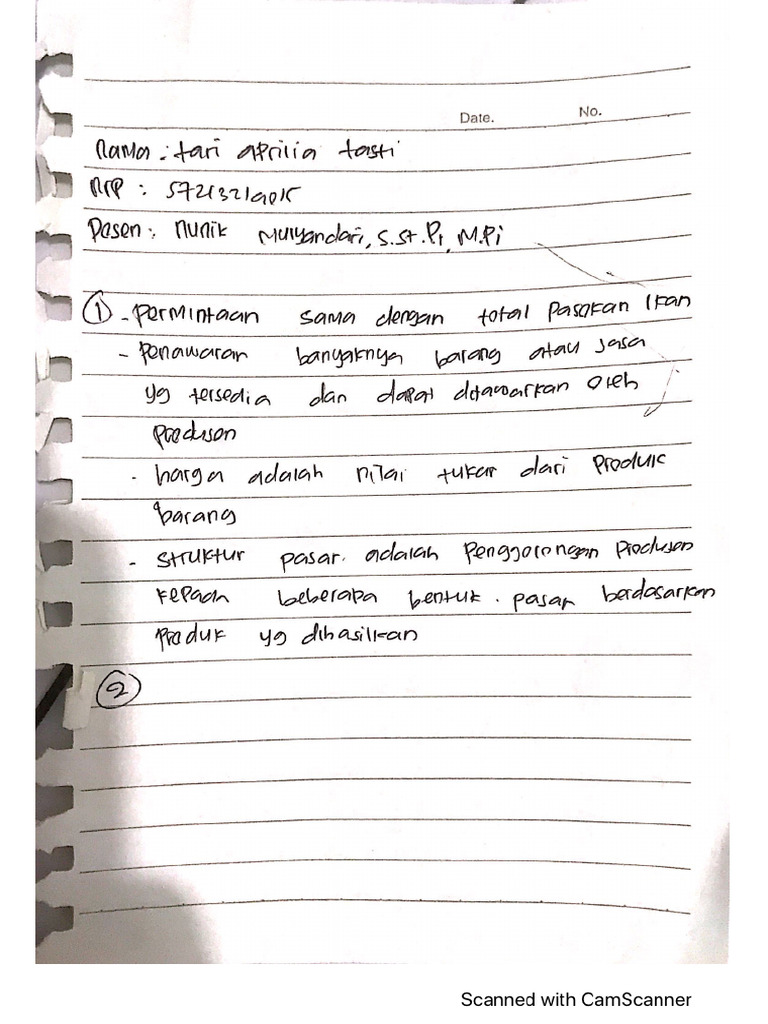 Date. No.
Nama : tari aprilia tasti
NRP : 57213219015
Dosen : Nunik Mulyandari, S.St.Pi, M.Pi
① - permintaan sama dengan total pasokan Ikan
- penawaran banyaknya barang atau jasa
yg tersedia dan dapat ditawarkan oleh
produson
- harga adalah nilai tukar dari produk
barang
- struktur pasar. adalah penggolongan produson
kepada beberapa bentuk. pasar berdasarkan
produk yg dihasilkan
②
Scanned with CamScanner